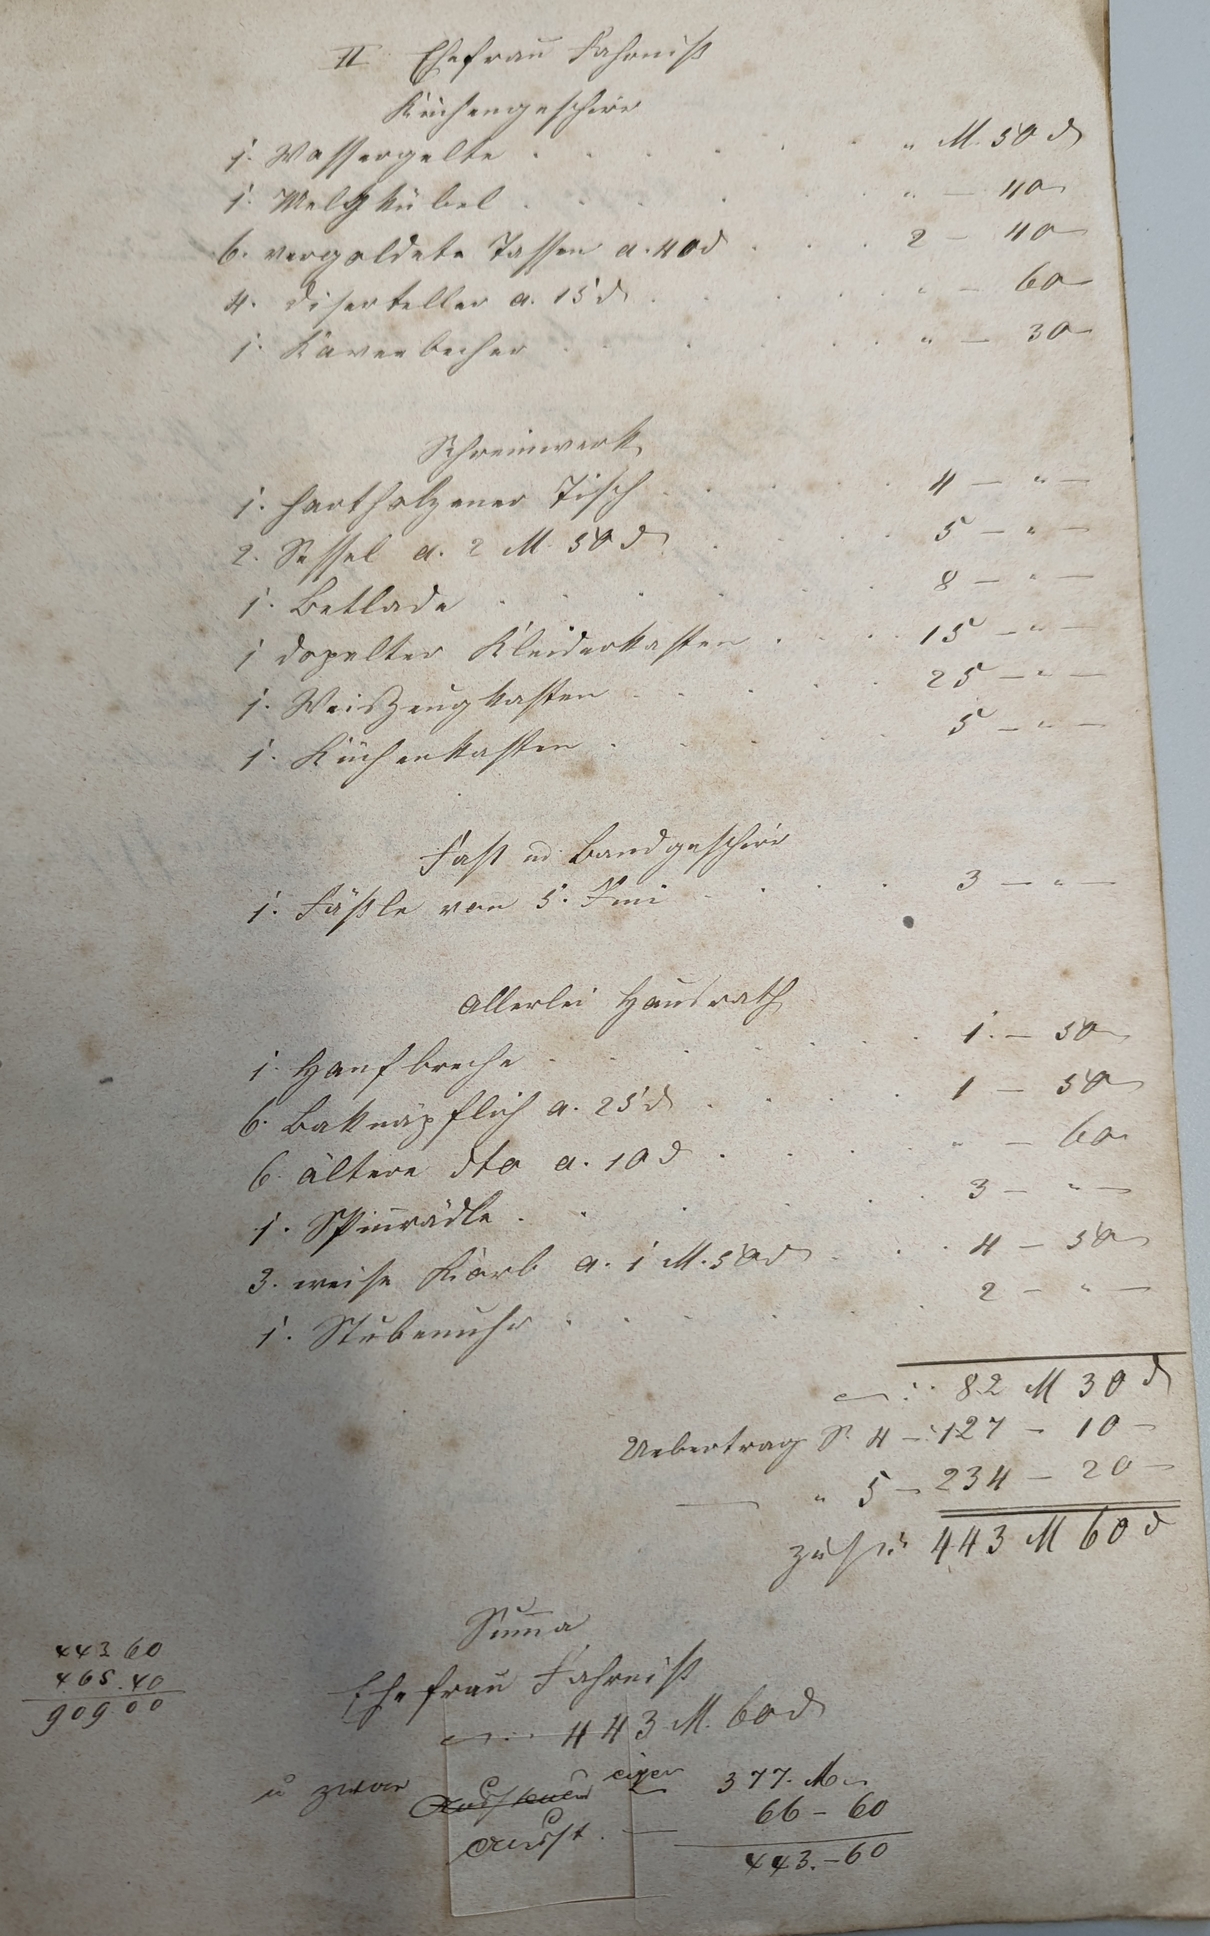 II Ehefrau Fahrniß
Küchengeschirr
1. Wassergelte . . . . . " M. 50 d
1. Melchkübel . . . . . " — 40 —
6. vergoldete Tassen a. 40 d . . . 2 — 40 —
4. Diserteller a. 15 d . . . . . " — 60 —
1. Kaveebecher . . . . . " — 30 —
Schreinwerk
1. hartholzener Tisch . . . . . 4 — " —
2. Sessel a. 2 M. 50 d . . . . 5 — " —
1. Betlade . . . . . 8 — " —
1 dopelter Kleiderkasten . . . . 15 — " —
1. Weiszeugkasten . . . . . 25 — " —
1. Küchenkasten . . . . . 5 — " —
Fast u Bandgeschirr
1. Fäßle von 5. Imi . . . . 3 — " —
Allerlei Hausrath
1. Hanfbreche . . . . . 1. — 50 —
6. Baknäpflich a. 25 d . . . . 1 — 50 —
6. ältere dto a. 10 d . . . . " — 60 —
1. Spinnrädle . . . . . 3 — " —
3. weise Körb a. 1 M. 50 d . . . 4 — 50 —
1. Stubenuhr . . . . . 2 — " —
82 M 30 d
Uebertrag S. 4 — 127 — 10 —
— " 5 — 234 — 20 —
443 M 60 d
Summa
443 60
465.40
909 00
Ehefrau Fahrniß
443 M. 60 d
u zwar eigen 377. M —
Ausst. — 66 — 60
443. — 60